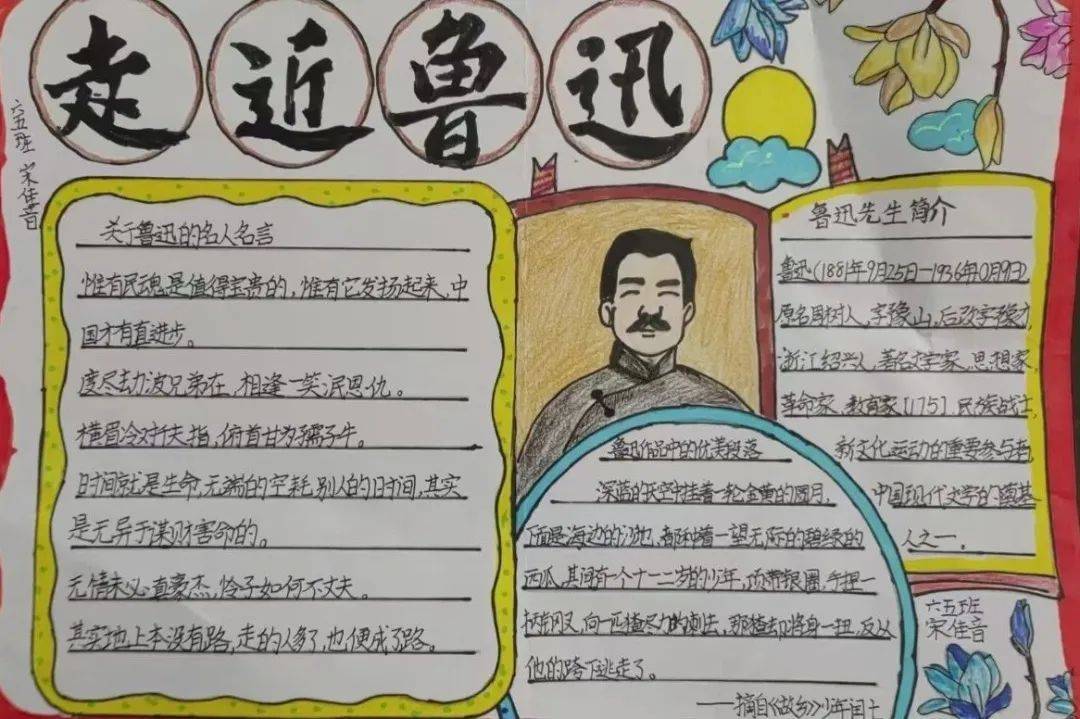 走近鲁迅
六五班 宋佳音
关于鲁迅的名人名言
惟有民魂是值得宝贵的，惟有它发扬起来，中
国才有直进步。
度尽劫波兄弟在，相逢一笑泯恩仇。
横眉冷对千夫指，俯首甘为孺子牛。
时间就是生命，无端的空耗别人的时间，其实
是无异于谋财害命的。
无情未必真豪杰，怜子如何不丈夫。
其实地上本没有路，走的人多了，也便成了路。
鲁迅先生简介
鲁迅(1881年9月25日—1936年10月19日)
原名周树人，字豫山，后改字豫才，
浙江绍兴人，著名文学家、思想家，
革命家，教育家[175]，民族战士，
新文化运动的重要参与者，
中国现代文学的奠基
人之一。
鲁迅作品中的优美段落
深蓝的天空中挂着一轮金黄的圆月，
下面是海边的沙地，都种着一望无际的碧绿的
西瓜，其间有一个十一二岁的少年，项带银圈，手捏一
柄钢叉，向一匹猹尽力的刺去，那猹却将身一扭，反从
他的跨下逃走了。
——摘自《故乡》少年闰土
六五班
宋佳音